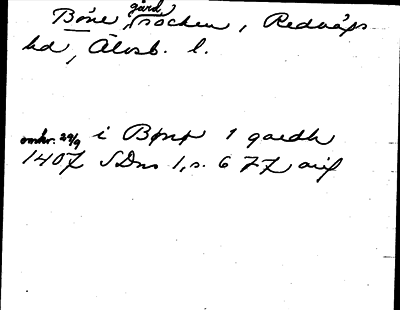 Böne gård, socken, Redvägs
hd, Älvsb. l.
omkr. 29/9 i Bønp 1 gardh
1407 SDns 1, s. 677 avs